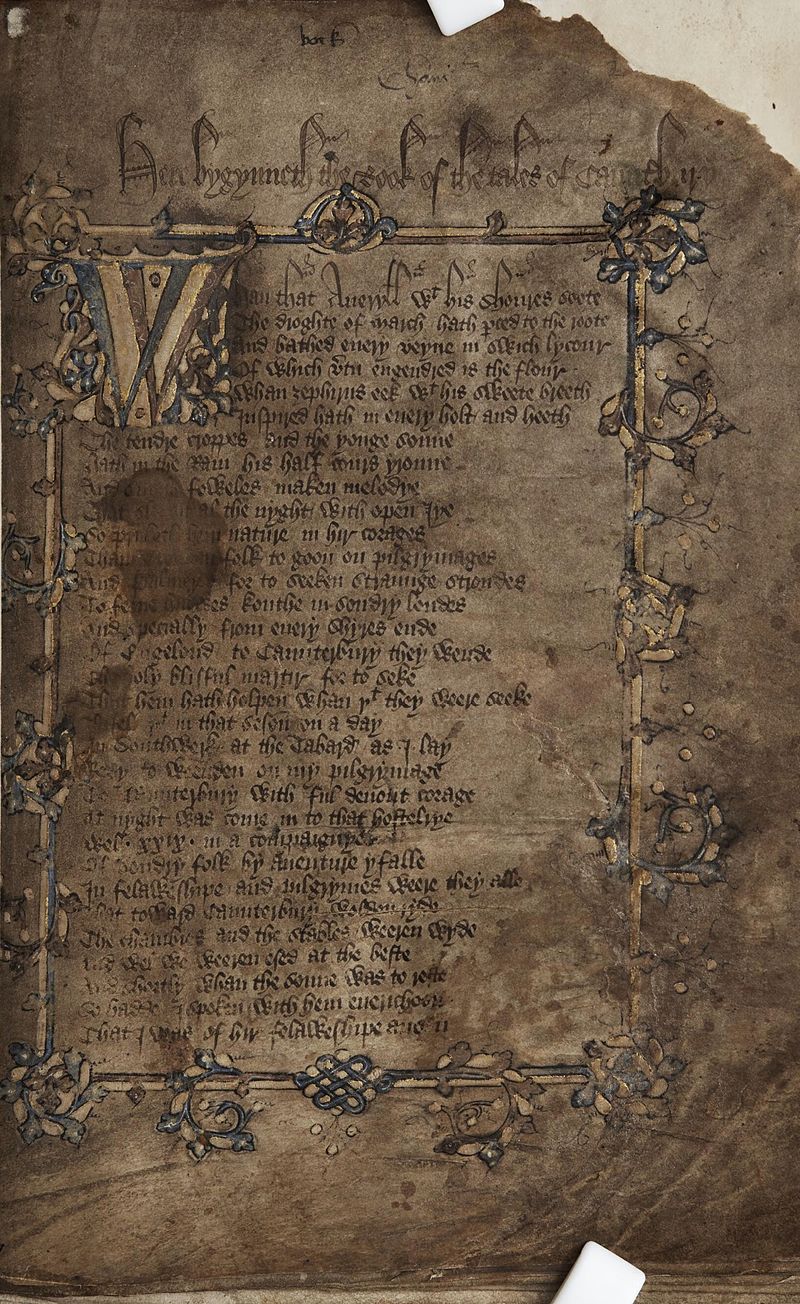 Here bygynneth the Book of the tales of Caunt̄b̄ury
Whan that Aueryƚƚ wᵗ his shoures soote
The droghte of march hath ꝑced to the roote
And bathed euery veyne in swich lycour
Of which v̄tu engendred is the flour
Whan zephirus eek wᵗ his sweete breeth
Inspired hath in euery holt and heeth
The tendre croppes and the yonge sonne
Hath in the Ram his half cours yronne
And foweles maken melodye
That al the nyght with open Iye
So priketh hem nature in hir corages
folk to goon on pilgrymages
And for to seeken straunge strondes
To ferne halwes kouthe in sondry londes
And specially from euery shyres ende
Of Engelond to Caunterbury they wende
The holy blisful martir for to seke
That hem hath holpen whan yᵗ they weere seeke
Bifel yᵗ in that seson on a day
In Southwerk at the Tabard as I lay
Redy to weenden on my pilgrymage
To Caunterbury with ful deuout corage
At nyght was come in to that hostelrye
Wel .xxix. in a compaignye
Of sondry folk by auenture yfalle
In felaweshipe and pilgrymes weere they alle
That toward Caunterbury wolden ryde
The chambres and the stables weeren wyde
And wel we weeren esed at the beste
And shortly whan the sonne was to reste
So hadde I spoken with hem euerichoon
That I was of hir felaweshipe anon